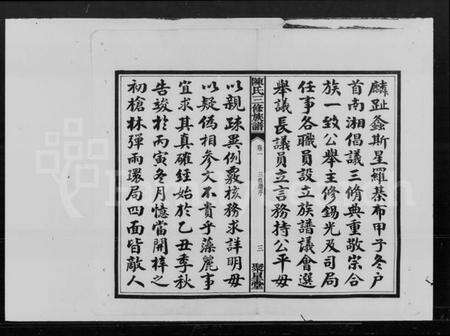 麟趾螽斯星羅棊布甲子冬户
首南湘倡議三修典重敬宗合
族一致公舉主修錫光及司局
任事各職員設立族譜議會選
舉議長議員立言務持公平毋
陳氏三修族譜
卷一
三修譜序
三
聚星堂
以親疎異例覈核務求詳明毋
以疑偽相參文不貴乎藻麗事
宜求其真確經始於乙丑季秋
告竣於丙寅冬月憶當開梓之
初槍林彈雨環局四面皆敵人